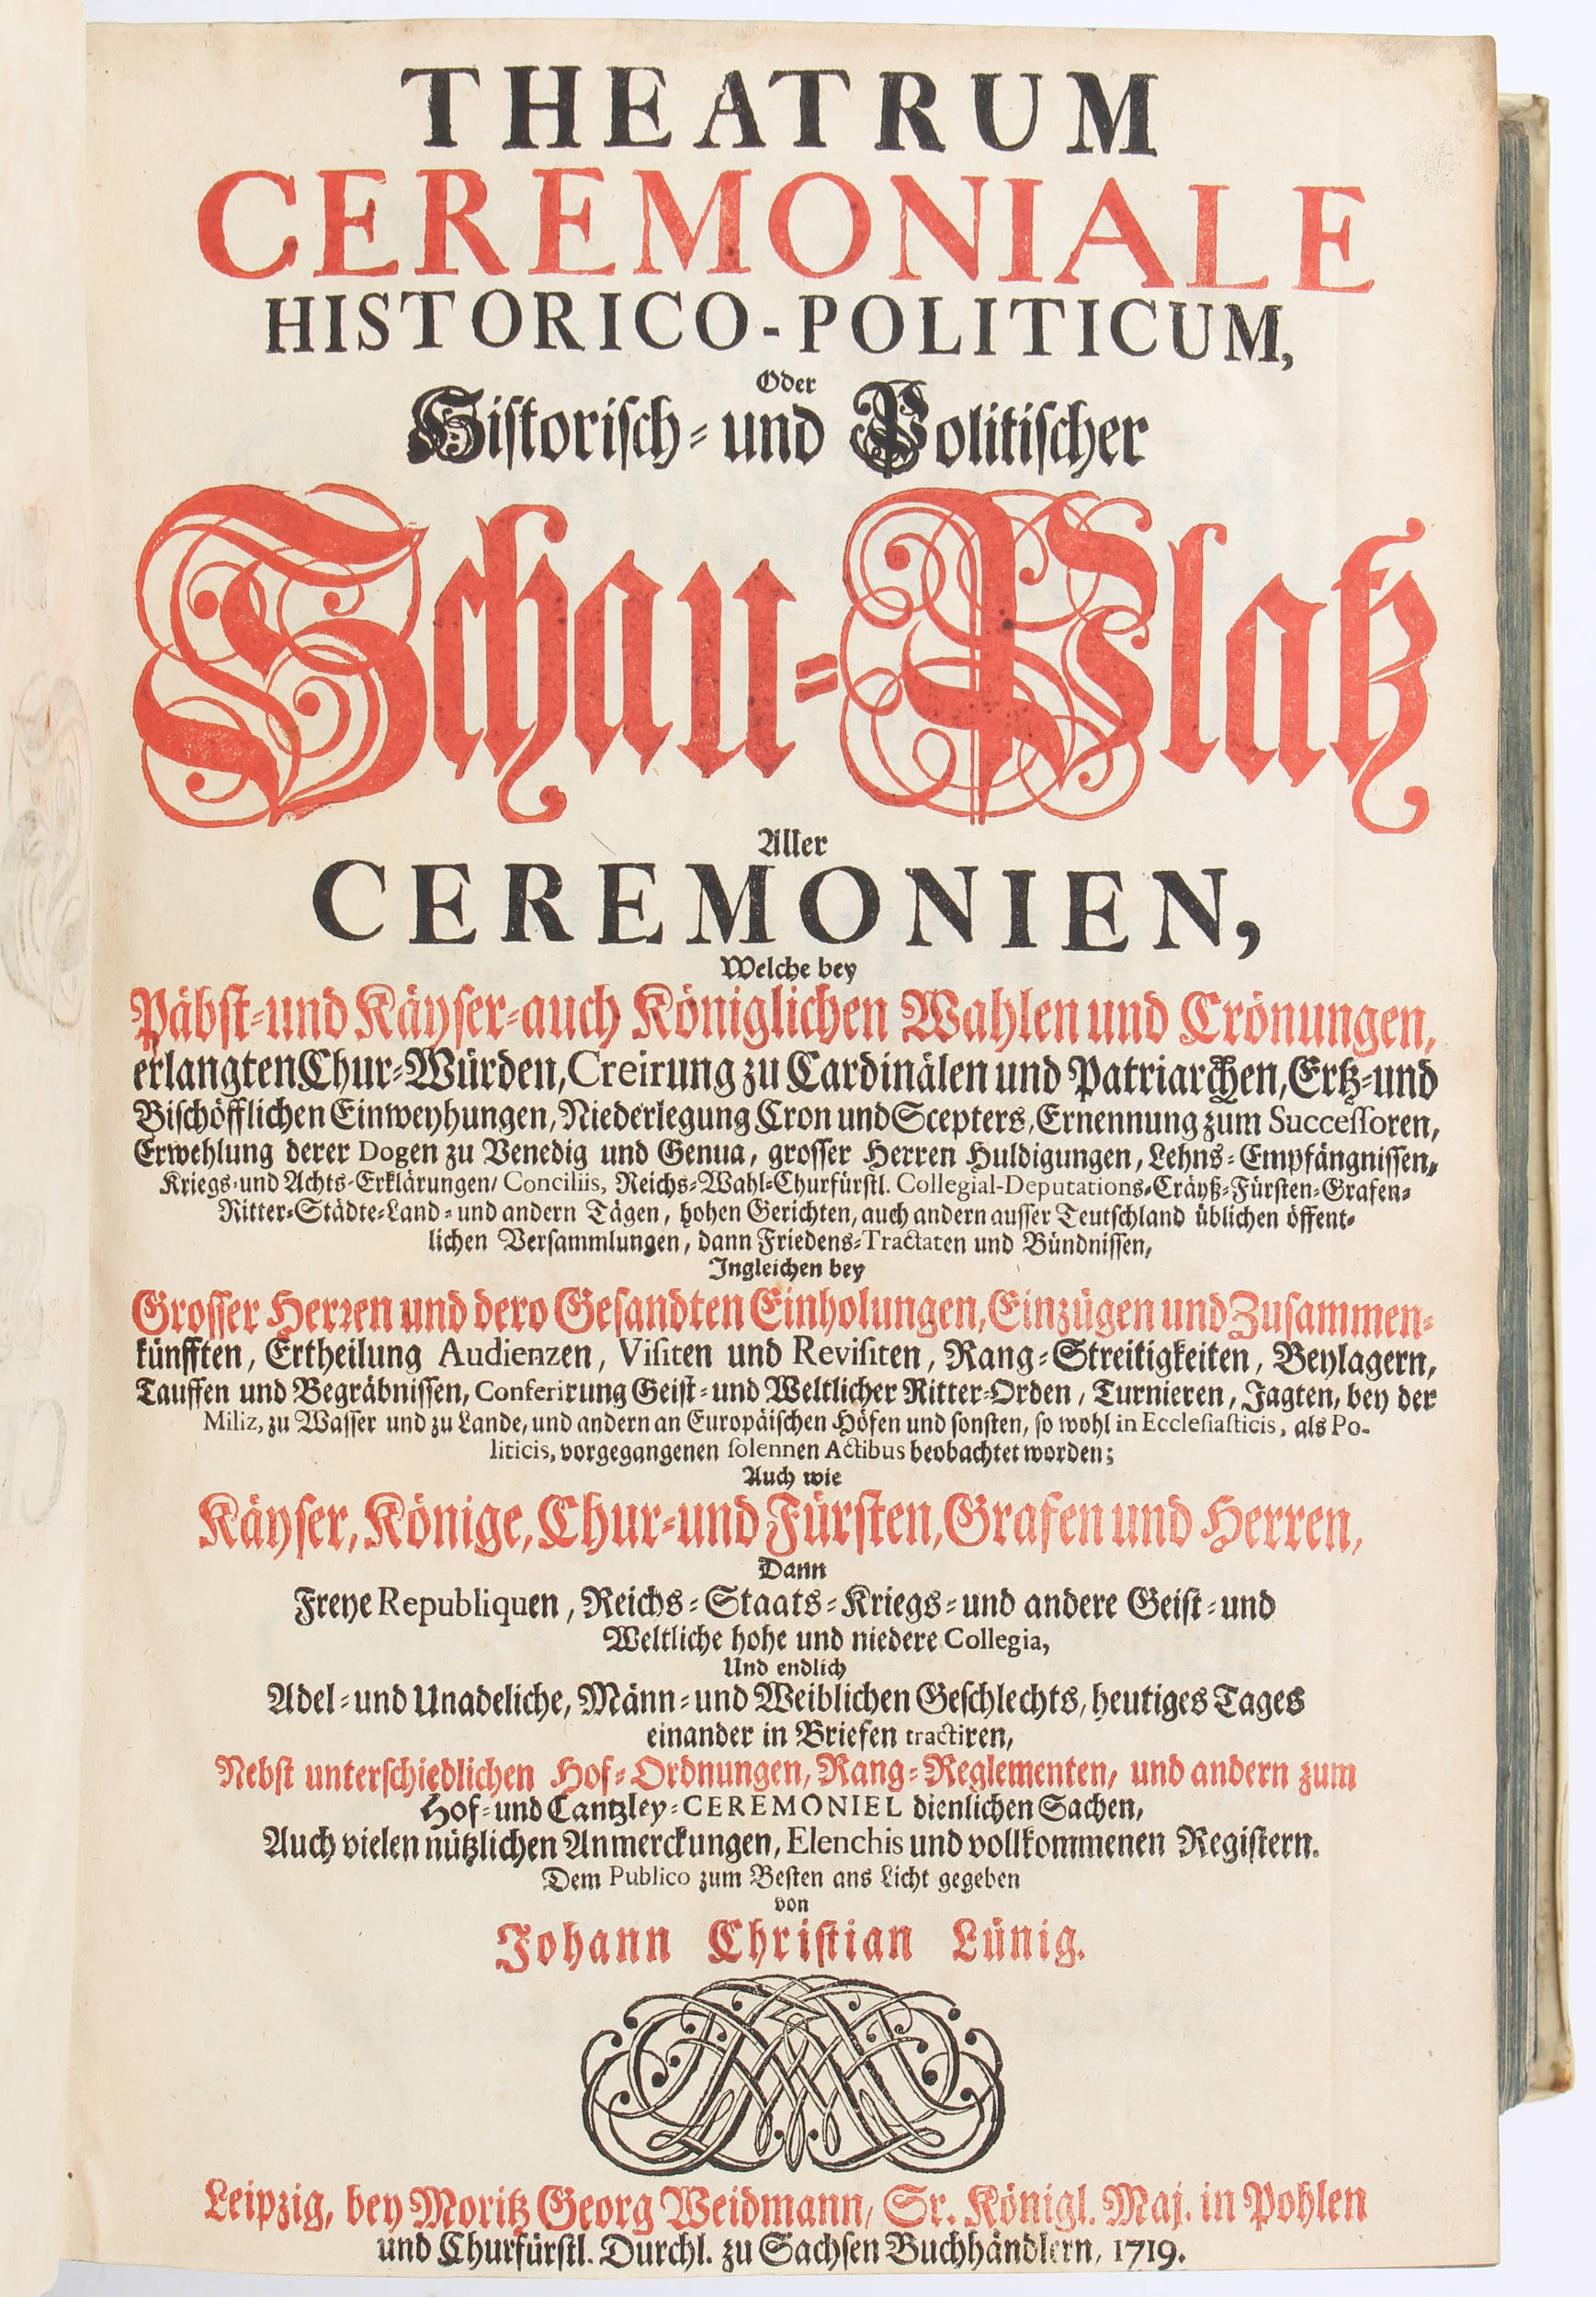 THEATRUM
CEREMONIALE
HISTORICO-POLITICUM,
Oder
Historisch- und Politischer
Schau-Platz
Aller
CEREMONIEN,
Welche bey
Päbst-und Käyser-auch Königlichen Wahlen und Crönungen,
erlangten Chur-Würden, Creirung zu Cardinälen und Patriarchen, Ertz-und
Bischöfflichen Einweyhungen, Niederlegung Cron und Scepters, Ernennung zum Successoren,
Erwehlung derer Dogen zu Venedig und Genua, grosser Herren Huldigungen, Lehns-Empfängnissen,
Kriegs-und Achts-Erklärungen/ Conciliis, Reichs-Wahl-Churfürstl. Collegial-Deputations-Cräyß-Fürsten-Grafen-
Ritter-Städte-Land-und andern Tägen, hohen Gerichten, auch andern ausser Teutschland üblichen öffent-
lichen Versammlungen, dann Friedens-Tractaten und Bündnissen,
Ingleichen bey
Grosser Herren und dero Gesandten Einholungen, Einzügen und Zusammen-
künfften, Ertheilung Audienzen, Visiten und Revisiten, Rang-Streitigkeiten, Beylagern,
Tauffen und Begräbnissen, Conferirung Geist-und Weltlicher Ritter-Orden, Turnieren, Jagten, bey der
Miliz, zu Wasser und zu Lande, und andern an Europäischen Höfen und sonsten, so wohl in Ecclesiasticis, als Po-
liticis, vorgegangenen solennen Actibus beobachtet worden;
Auch wie
Käyser, Könige, Chur-und Fürsten, Grafen und Herren,
Dann
Freye Republiquen, Reichs-Staats-Kriegs-und andere Geist-und
Weltliche hohe und niedere Collegia,
Und endlich
Adel-und Unadeliche, Männ-und Weiblichen Geschlechts, heutiges Tages
einander in Briefen tractiren,
Nebst unterschiedlichen Hof-Ordnungen, Rang-Reglementen, und andern zum
Hof-und Cantzley-CEREMONIEL dienlichen Sachen,
Auch vielen nützlichen Anmerckungen, Elenchis und vollkommenen Registern.
Dem Publico zum Besten ans Licht gegeben
von
Johann Christian Lünig.
Leipzig, bey Moritz Georg Weidmann, Sr. Königl. Maj. in Pohlen
und Churfürstl. Durchl. zu Sachsen Buchhändlern, 1719.